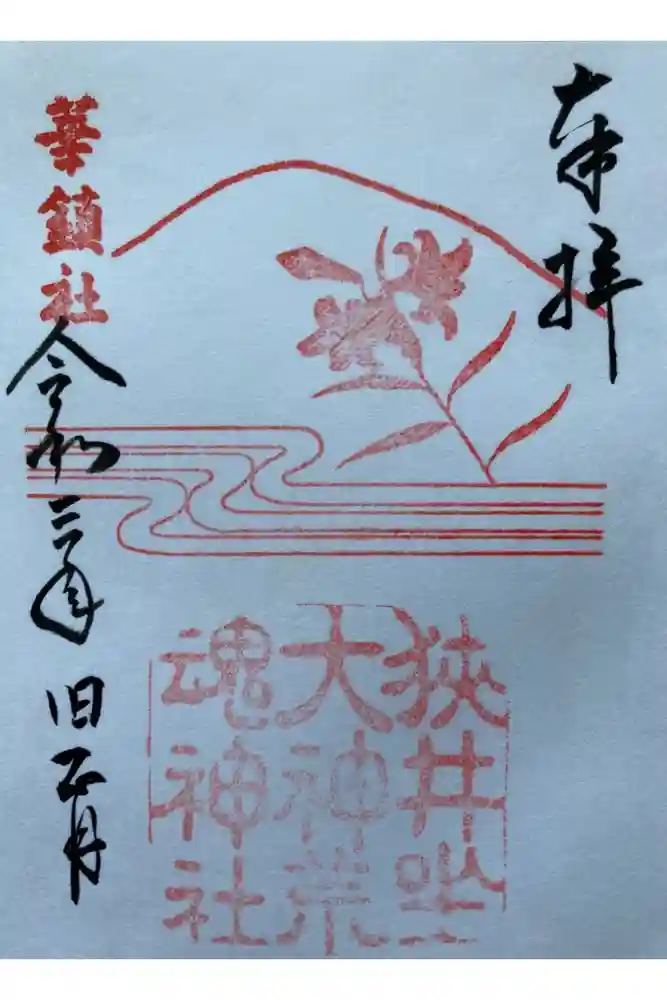 奉拝
狭井坐
大神荒
魂神社
華鎮社
令和三年 旧正月